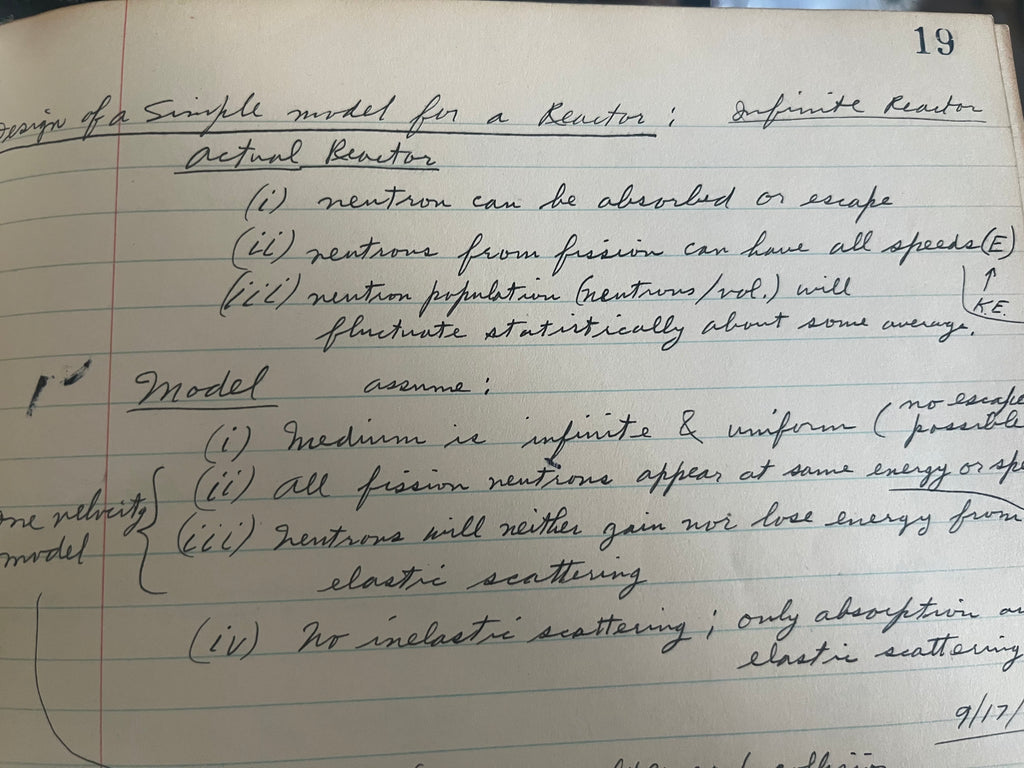 19
Design of a Simple model for a Reactor: Infinite Reactor
Actual Reactor
(i) neutron can be absorbed or escape
(ii) neutrons from fission can have all speeds (E)
↑
K.E.
(iii) neutron population (neutrons/vol.) will
fluctuate statistically about some average.
Model assume:
(i) Medium is infinite & uniform (no escape
possible
(ii) All fission neutrons appear at same energy or spe
One velocity
model
(iii) Neutrons will neither gain nor lose energy from
elastic scattering
(iv) No inelastic scattering; only absorption
elastic scattering
9/17/